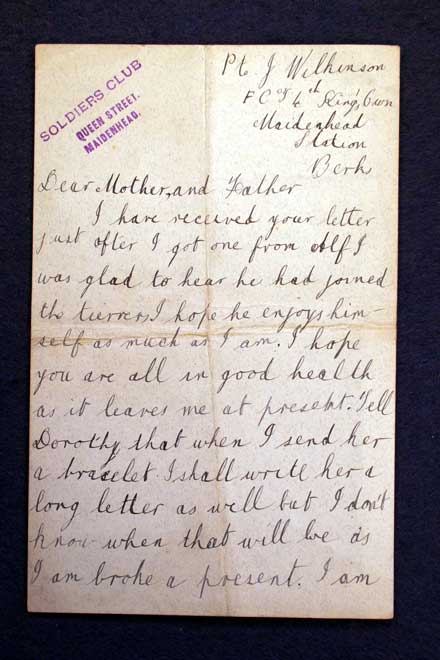 SOLDIERS CLUB
QUEEN STREET.
MAIDENHEAD.
Pt. J Wilkinson
F Coy 4th King's Own
Maidenhead
Station
Berks
Dear Mother, and Father
I have received your letter
just after I got one from Alf I
was glad to hear he had joined
the terriers, I hope he enjoys him-
self as much as I am. I hope
you are all in good health
as it leaves me at present. Tell
Dorothy that when I send her
a bracelet. I shall write her a
long letter as well but I don't
know when that will be as
I am broke a present. I am